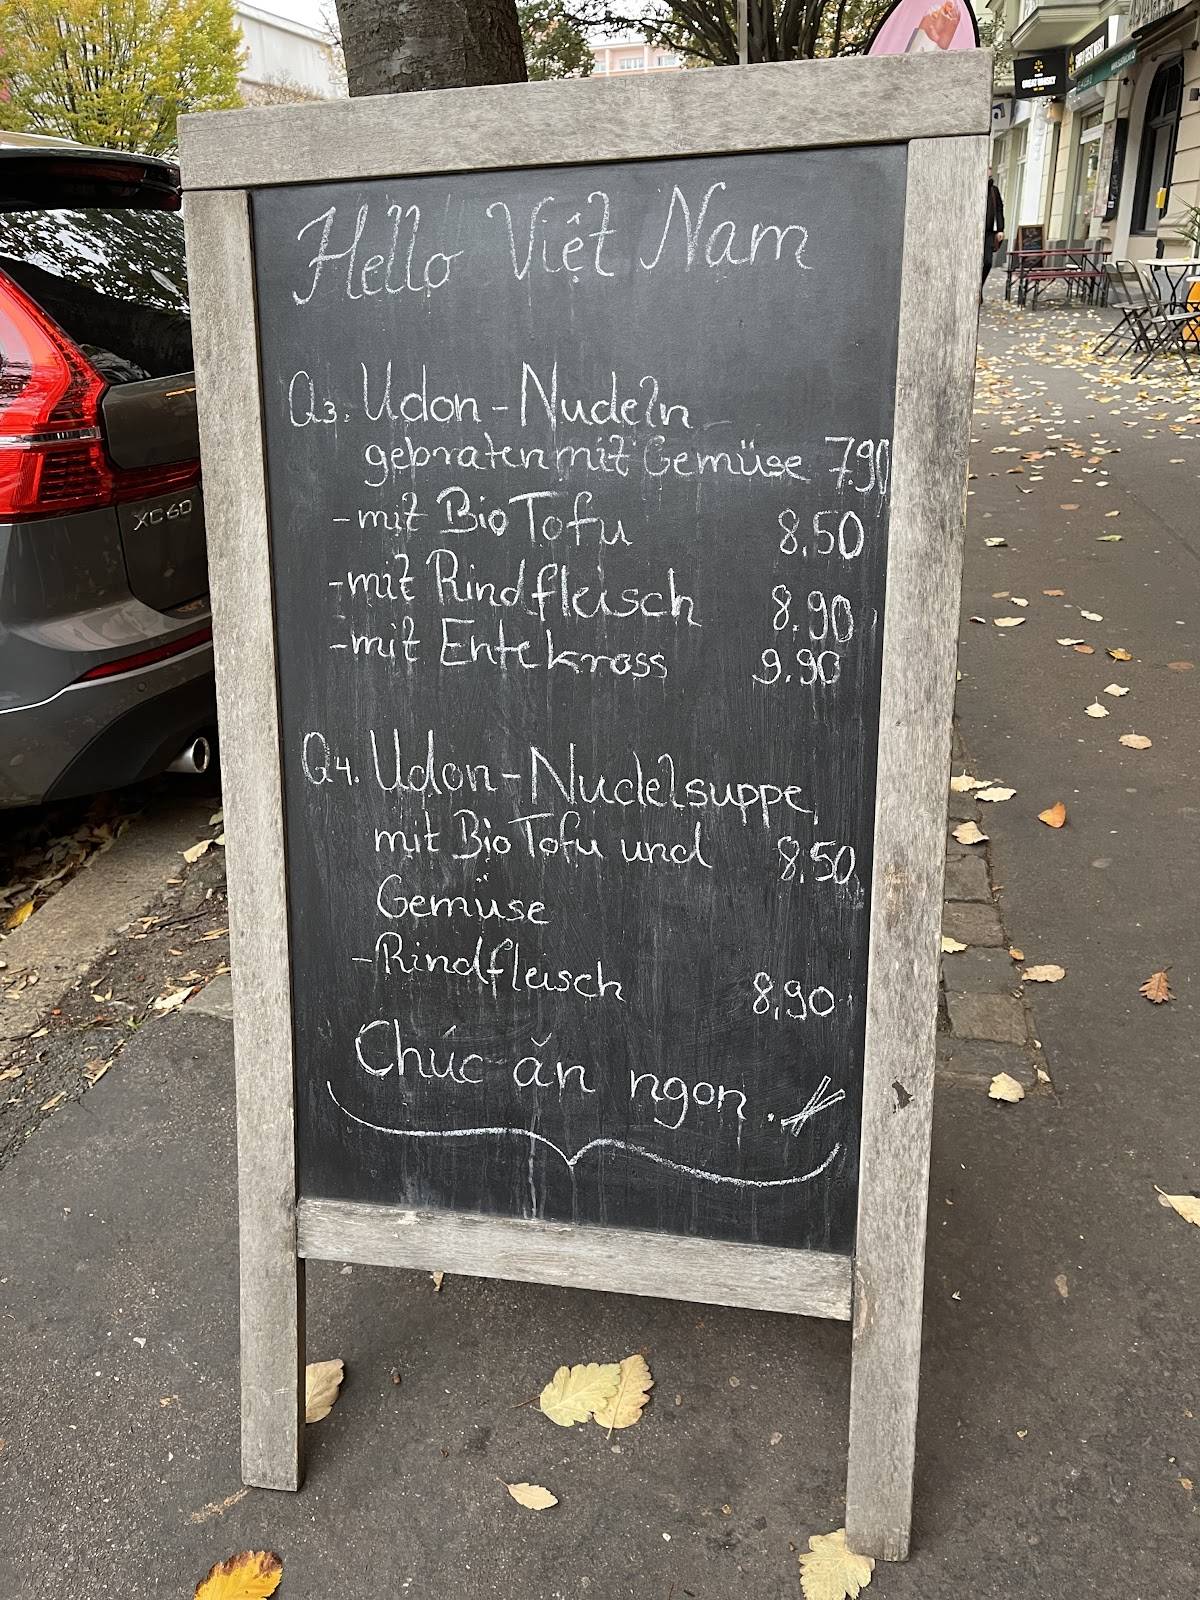 Hello Việt Nam
Q3. Udon-Nudeln
gebraten mit Gemüse 7.90
-mit Bio Tofu 8.50
-mit Rindfleisch 8.90
-mit Entekross 9.90
Q4. Udon-Nudelsuppe
mit Bio Tofu und 8,50
Gemüse
-Rindfleisch 8,90
Chúc ăn ngon.
XC60
GREAT WHISKY